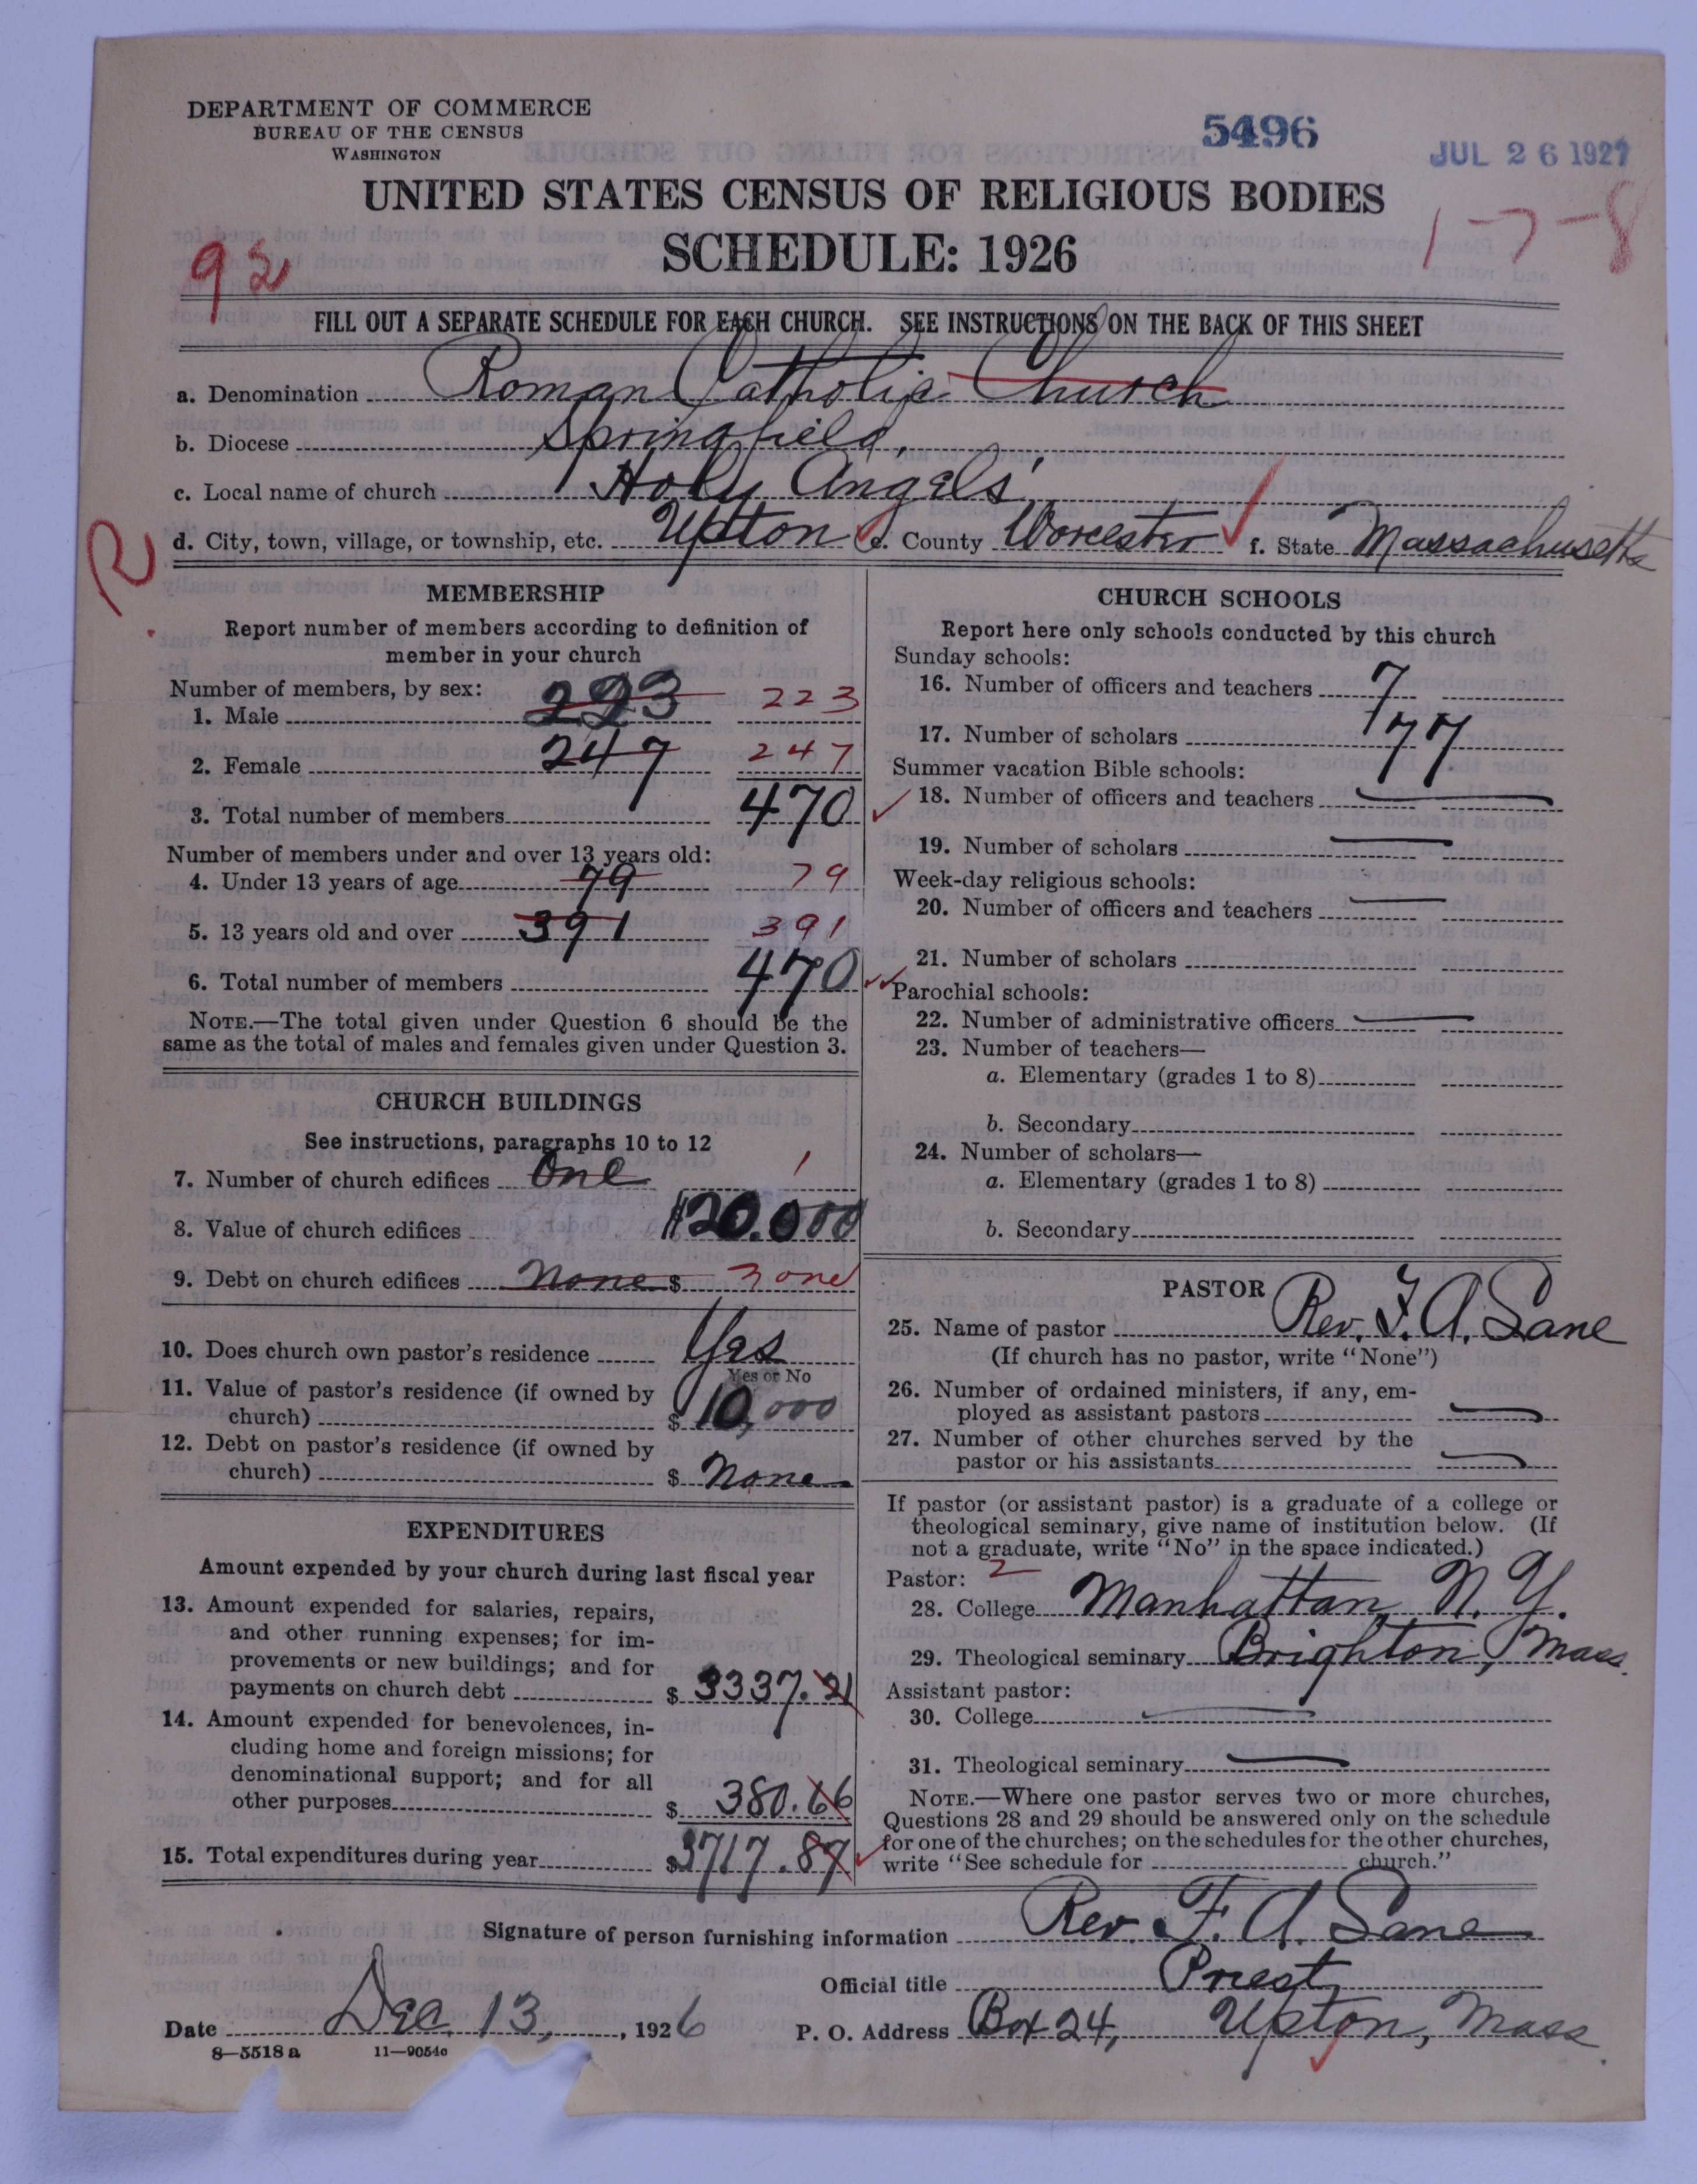 DEPARTMENT OF COMMERCE
BUREAU OF THE CENSUS
WASHINGTON
5496
JUL 26 1927
UNITED STATES CENSUS OF RELIGIOUS BODIES
SCHEDULE: 1926
92
1-7-8
FILL OUT A SEPARATE SCHEDULE FOR EACH CHURCH. SEE INSTRUCTIONS ON THE BACK OF THIS SHEET
a. Denomination Roman Catholic Church
b. Diocese Springfield,
c. Local name of church Holy Angels'
R d. City, town, village, or township, etc. Upton e. County Worcester f. State Massachusetts
MEMBERSHIP
Report number of members according to definition of
member in your church
Number of members, by sex:
1. Male 223 223
2. Female 247 247
3. Total number of members 470
Number of members under and over 13 years old:
4. Under 13 years of age 79 79
5. 13 years old and over 391 391
6. Total number of members 470
NOTE.—The total given under Question 6 should be the
same as the total of males and females given under Question 3.
CHURCH BUILDINGS
See instructions, paragraphs 10 to 12
7. Number of church edifices One 1
8. Value of church edifices $20.000
9. Debt on church edifices None $ None
10. Does church own pastor's residence Yes
Yes or No
11. Value of pastor's residence (if owned by
church) $ 10,000
12. Debt on pastor's residence (if owned by
church) $ None
EXPENDITURES
Amount expended by your church during last fiscal year
13. Amount expended for salaries, repairs,
and other running expenses; for im-
provements or new buildings; and for
payments on church debt $ 3337.21
14. Amount expended for benevolences, in-
cluding home and foreign missions; for
denominational support; and for all
other purposes $ 380.66
15. Total expenditures during year $3717.87
CHURCH SCHOOLS
Report here only schools conducted by this church
Sunday schools:
16. Number of officers and teachers 7
17. Number of scholars 77
Summer vacation Bible schools:
18. Number of officers and teachers
19. Number of scholars
Week-day religious schools:
20. Number of officers and teachers
21. Number of scholars
Parochial schools:
22. Number of administrative officers
23. Number of teachers—
a. Elementary (grades 1 to 8)
b. Secondary
24. Number of scholars—
a. Elementary (grades 1 to 8)
b. Secondary
PASTOR
25. Name of pastor Rev. F. A. Lane
(If church has no pastor, write "None")
26. Number of ordained ministers, if any, em-
ployed as assistant pastors
27. Number of other churches served by the
pastor or his assistants
If pastor (or assistant pastor) is a graduate of a college or
theological seminary, give name of institution below. (If
not a graduate, write "No" in the space indicated.)
Pastor: 2
28. College Manhattan, N. Y.
29. Theological seminary Brighton, Mass.
Assistant pastor:
30. College
31. Theological seminary
NOTE.—Where one pastor serves two or more churches,
Questions 28 and 29 should be answered only on the schedule
for one of the churches; on the schedules for the other churches,
write "See schedule for church."
Signature of person furnishing information Rev. F. A. Lane
Official title Priest
Date Dec. 13, 1926
P. O. Address Box 24, Upton, Mass.
8—5518 a 11—9054c